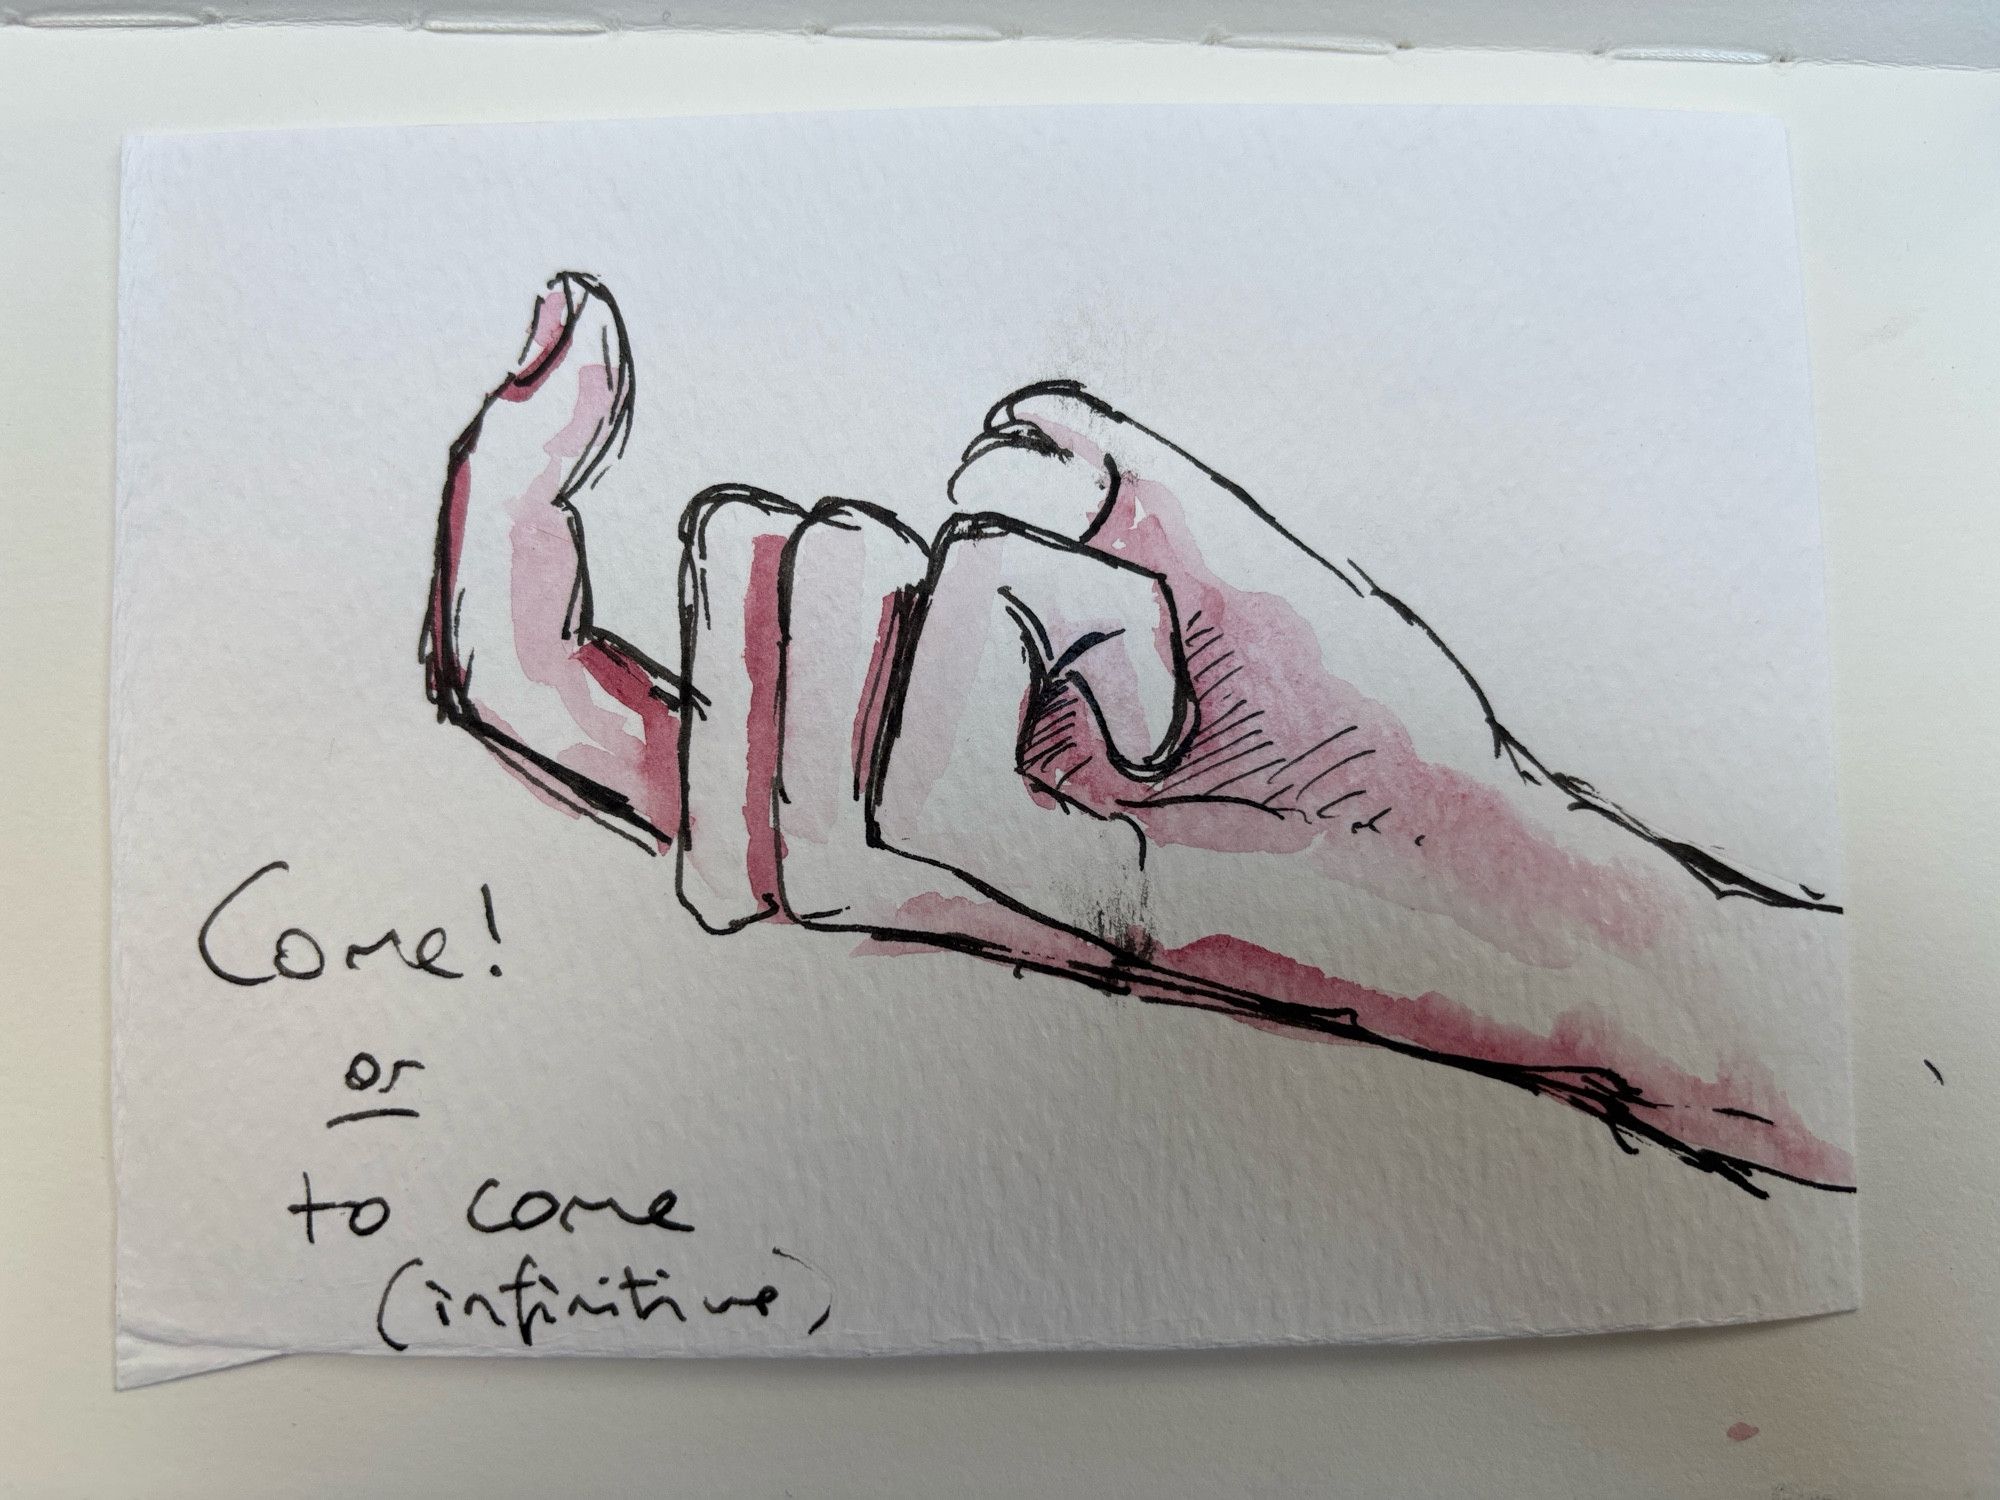 Come!
or
to come
(infinitive)